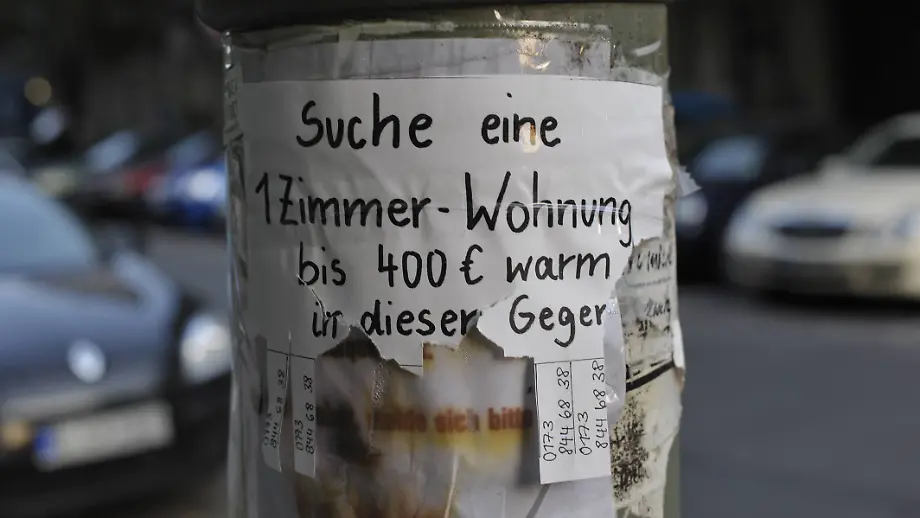 Suche eine
1 Zimmer-Wohnung
bis 400 € warm
in dieser Geger
sich bitte
0173
844 68 38
0173
844 68 38
0173
844 68 38
0173
844 68 38